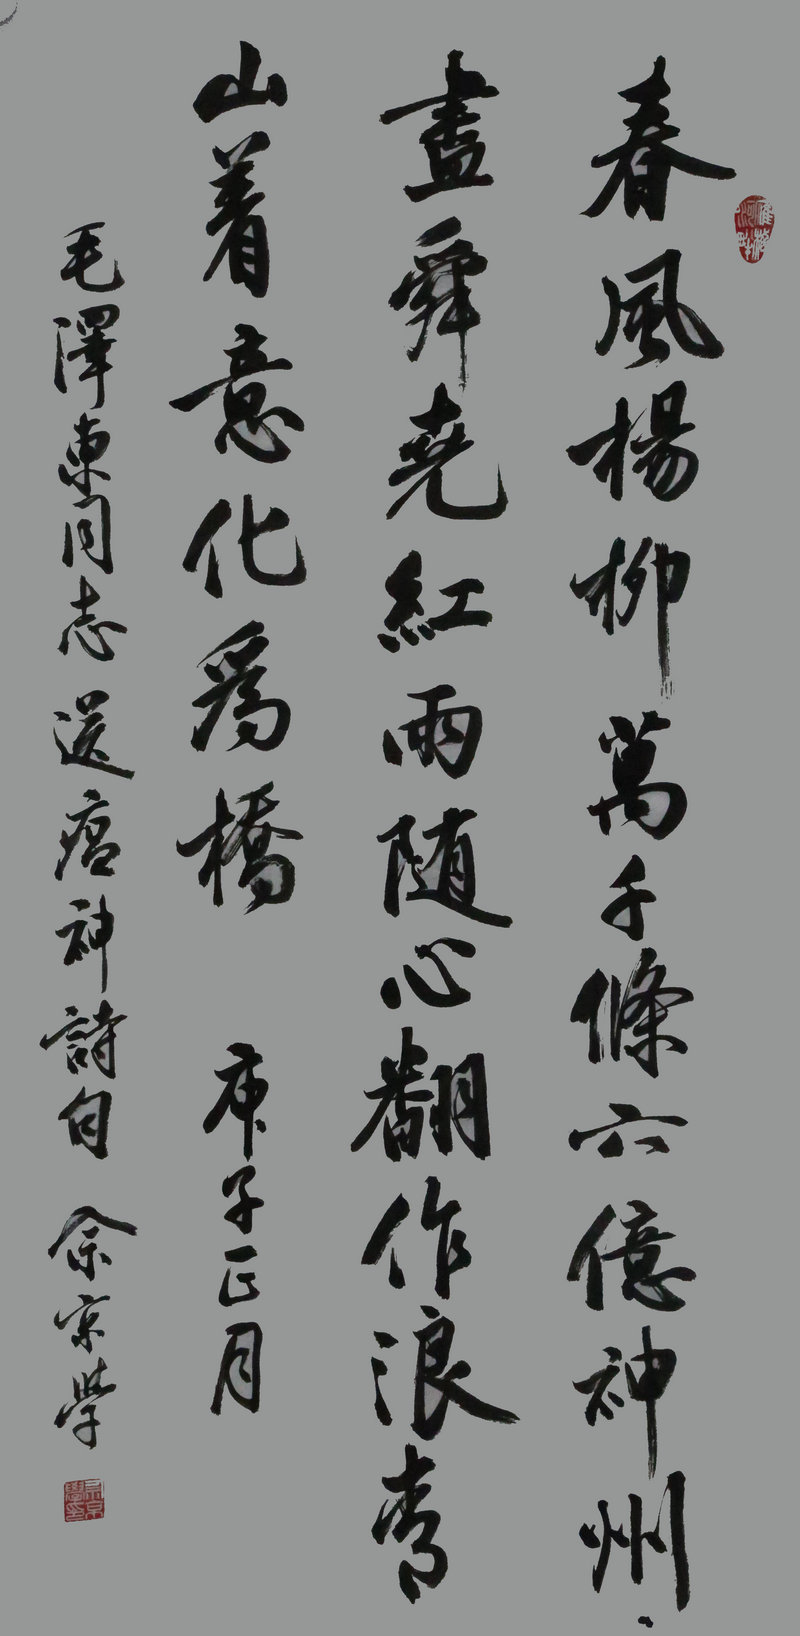 春風楊柳萬千條六億神州
盡舜堯紅雨随心翻作浪青
山着意化爲橋 庚子正月
毛澤東同志送瘟神詩句 佘京學